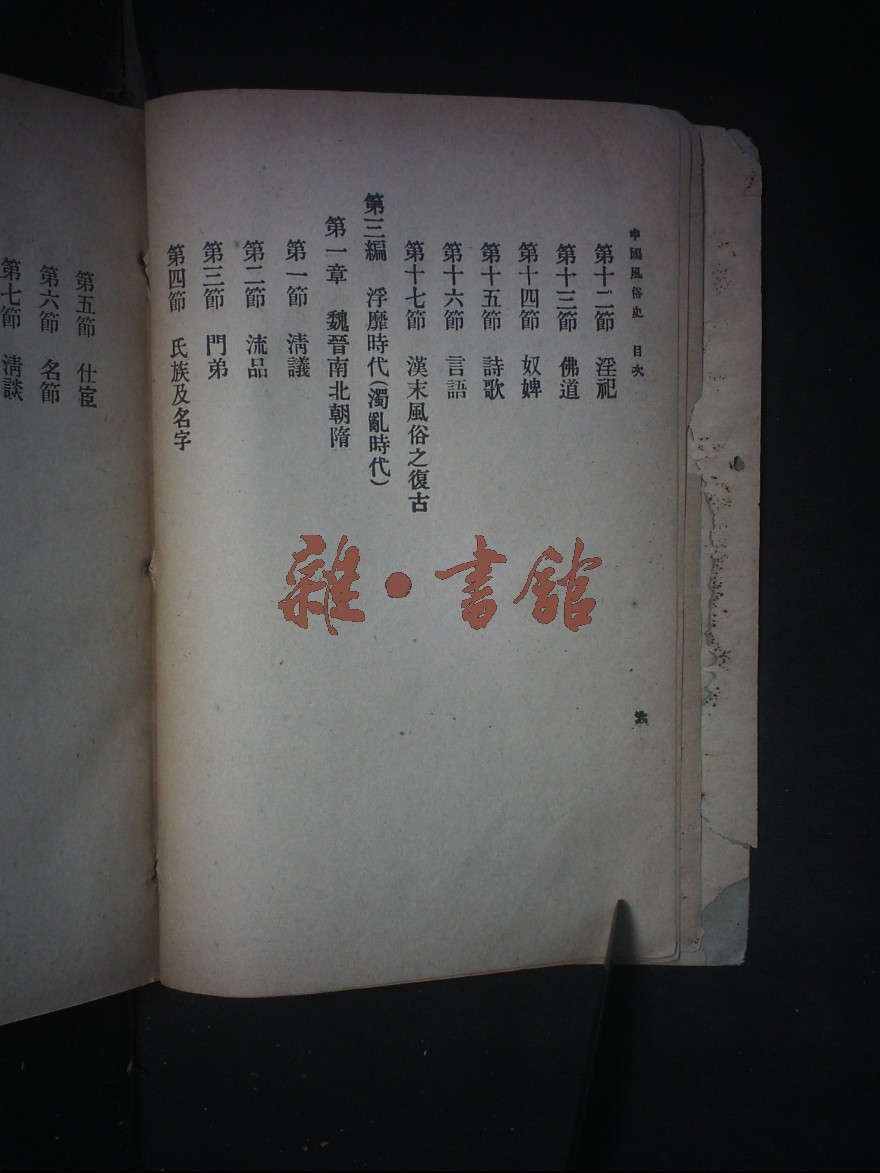 中國風俗史 目次
第十二節 淫祀
第十三節 佛道
第十四節 奴婢
第十五節 詩歌
第十六節 言語
第十七節 漢末風俗之復古
第三編 浮靡時代(濁亂時代)
第一章 魏晉南北朝隋
第一節 淸議
第二節 流品
第三節 門弟
第四節 氏族及名字
第五節 仕宦
第六節 名節
第七節 淸談
雜·書館